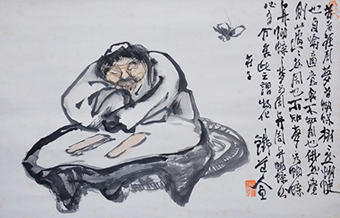 昔者莊周夢為蝴蝶栩栩然蝴蝶
也自喻適志與不知周也俄然覺
則蘧蘧然周也不知周之夢為蝴蝶
與蝴蝶之夢為周與周與蝴蝶則
必有分矣此之謂物化